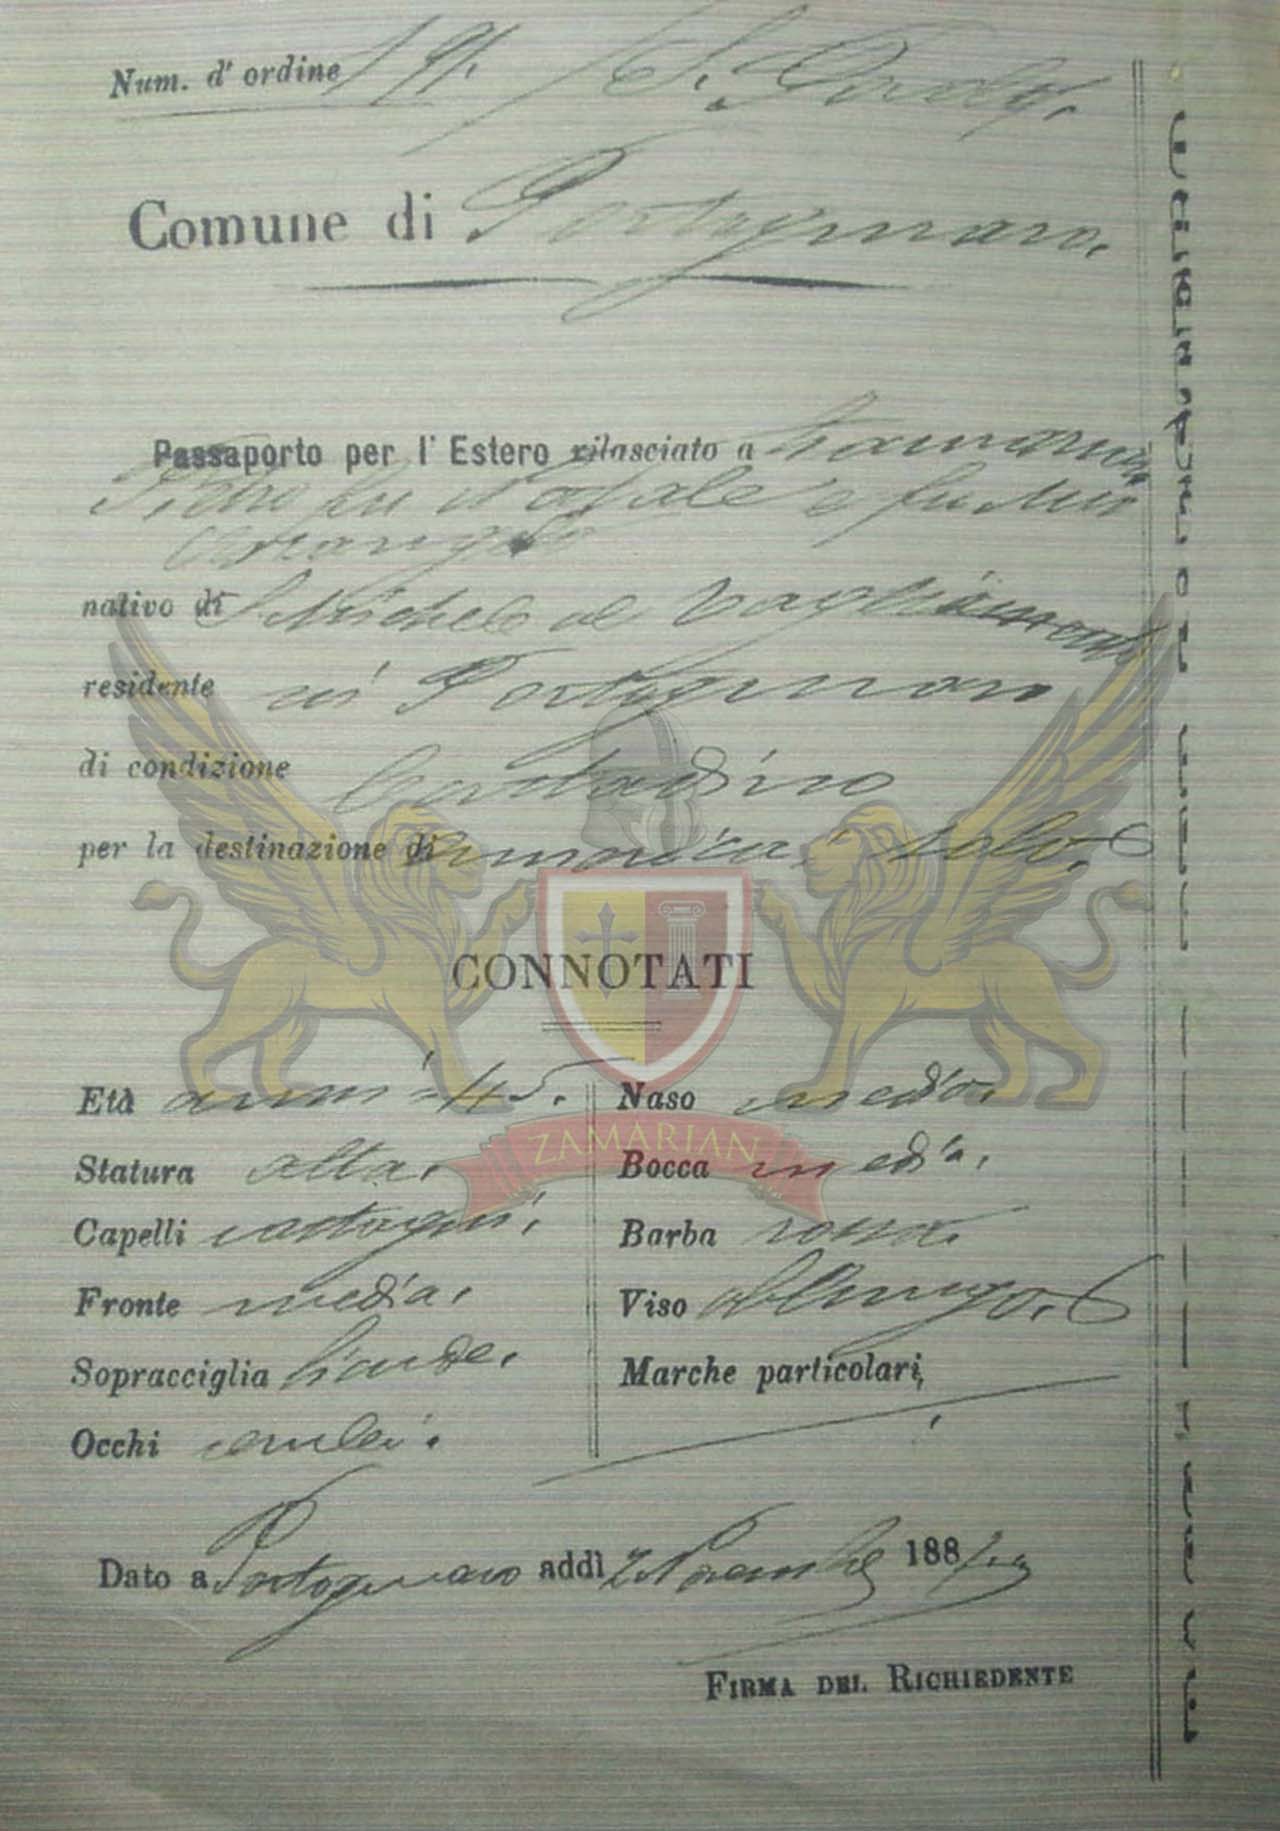 Num. d' ordine 19.
Comune di Portogruaro.
Passaporto per l' Estero rilasciato a
Pietro fu Natale e fu
nativo di S. Michele al Tagliamento
residente in Portogruaro
di condizione Contadino
per la destinazione di America solo.
CONNOTATI
Età anni 45.
Statura alta.
Capelli castagni.
Fronte media.
Sopracciglia bionde.
Occhi cerulei.
Naso medio.
Bocca media.
Barba rossa.
Viso oblungo.
Marche particolari,
ZAMARIAN
Dato a Portogruaro addì 2 Novembre 188
FIRMA DEL RICHIEDENTE